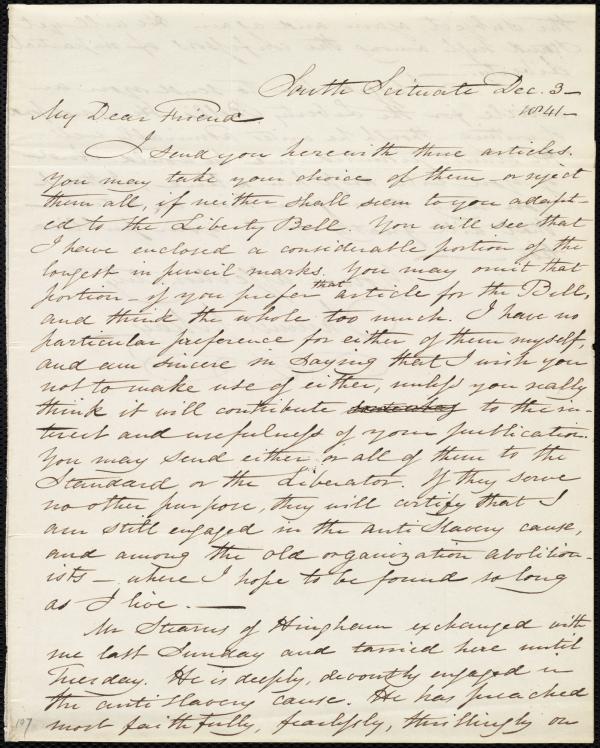 South Scituate Dec. 3-
1841-
My Dear Friend
I send you herewith three articles.
You may take your choice of them - or reject
them all, if neither shall seem to you adapt-
ed to the Liberty Bell. You will see that
I have enclosed a considerable portion of the
longest in pencil marks. You may omit that
portion - if you prefer that article for the Bell,
and think the whole too much. I have no
particular preference for either of them myself,
and am sincere in saying that I wish you
not to make use of either, unless you really
think it will contribute to the in-
terest and usefulness of your publication.
You may send either or all of them to the
Standard or the Liberator. If they serve
no other purpose, they will certify that I
am still engaged in the anti Slavery cause,
and among the old organization abolition-
ists - where I hope to be found so long
as I live. —
Mr Stearns of Hingham exchanged with
me last Sunday and tarried here until
Tuesday. He is deeply, devoutly engaged in
the anti Slavery cause. He has preached
most faithfully, fearlessly, thrillingly on
107